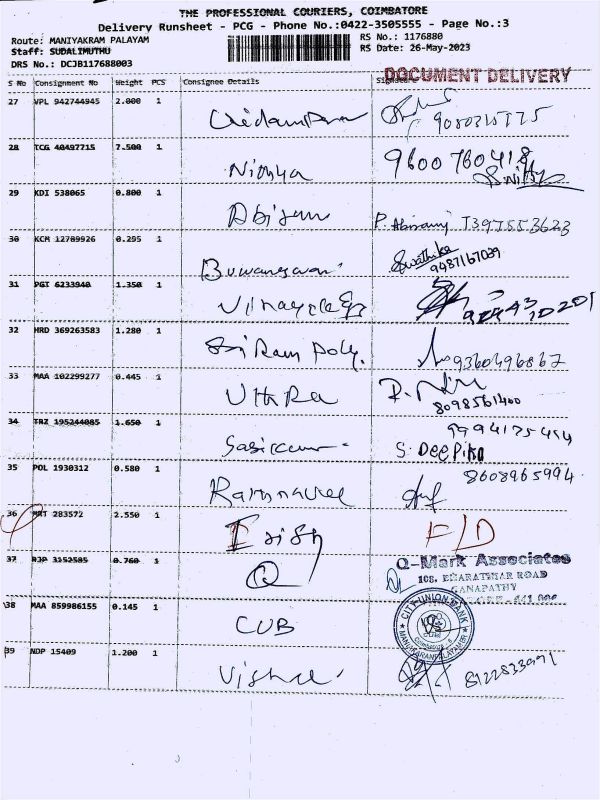 THE PROFESSIONAL COURIERS, COIMBATORE
Delivery Runsheet - PCG - Phone No.:0422-3505555 - Page No.:3
Route: MANIYAKRAM PALAYAM
RS No.: 1176880
Staff: SUDALIMUTHU
RS Date: 26-May-2023
DRS No.: DCJB117688003
DOCUMENT DELIVERY
S No Consignment No Weight PCS Consignee Details Signature
27 VPL 942744945 2.000 1
28 TCG 40497715 7.500 1 Nithya 9600760418
29 KDI 538065 0.800 1 P. Abirami 7397553623
30 KCM 12789926 0.295 1 Buwaneswari Swathika 9487167039
31 PGT 6233940 1.350 1
32 HRD 369263583 1.280 1 Sri Ram Poly. 9360496867
33 MAA 102299277 0.445 1 Uthra 8098561400
34 TRZ 195244085 1.650 1 Sasikumar 9994175454 S. Deepika
35 POL 1930312 0.580 1 8608965994
36 MKT 283572 2.550 1 F/D
37 RJP 3152585 0.760 1 Q Q-Mark Associates
108, BHARATHIAR ROAD
GANAPATHY
38 MAA 859986155 0.145 1 CUB CITY UNION BANK
39 NDP 15409 1.200 1 8122833991